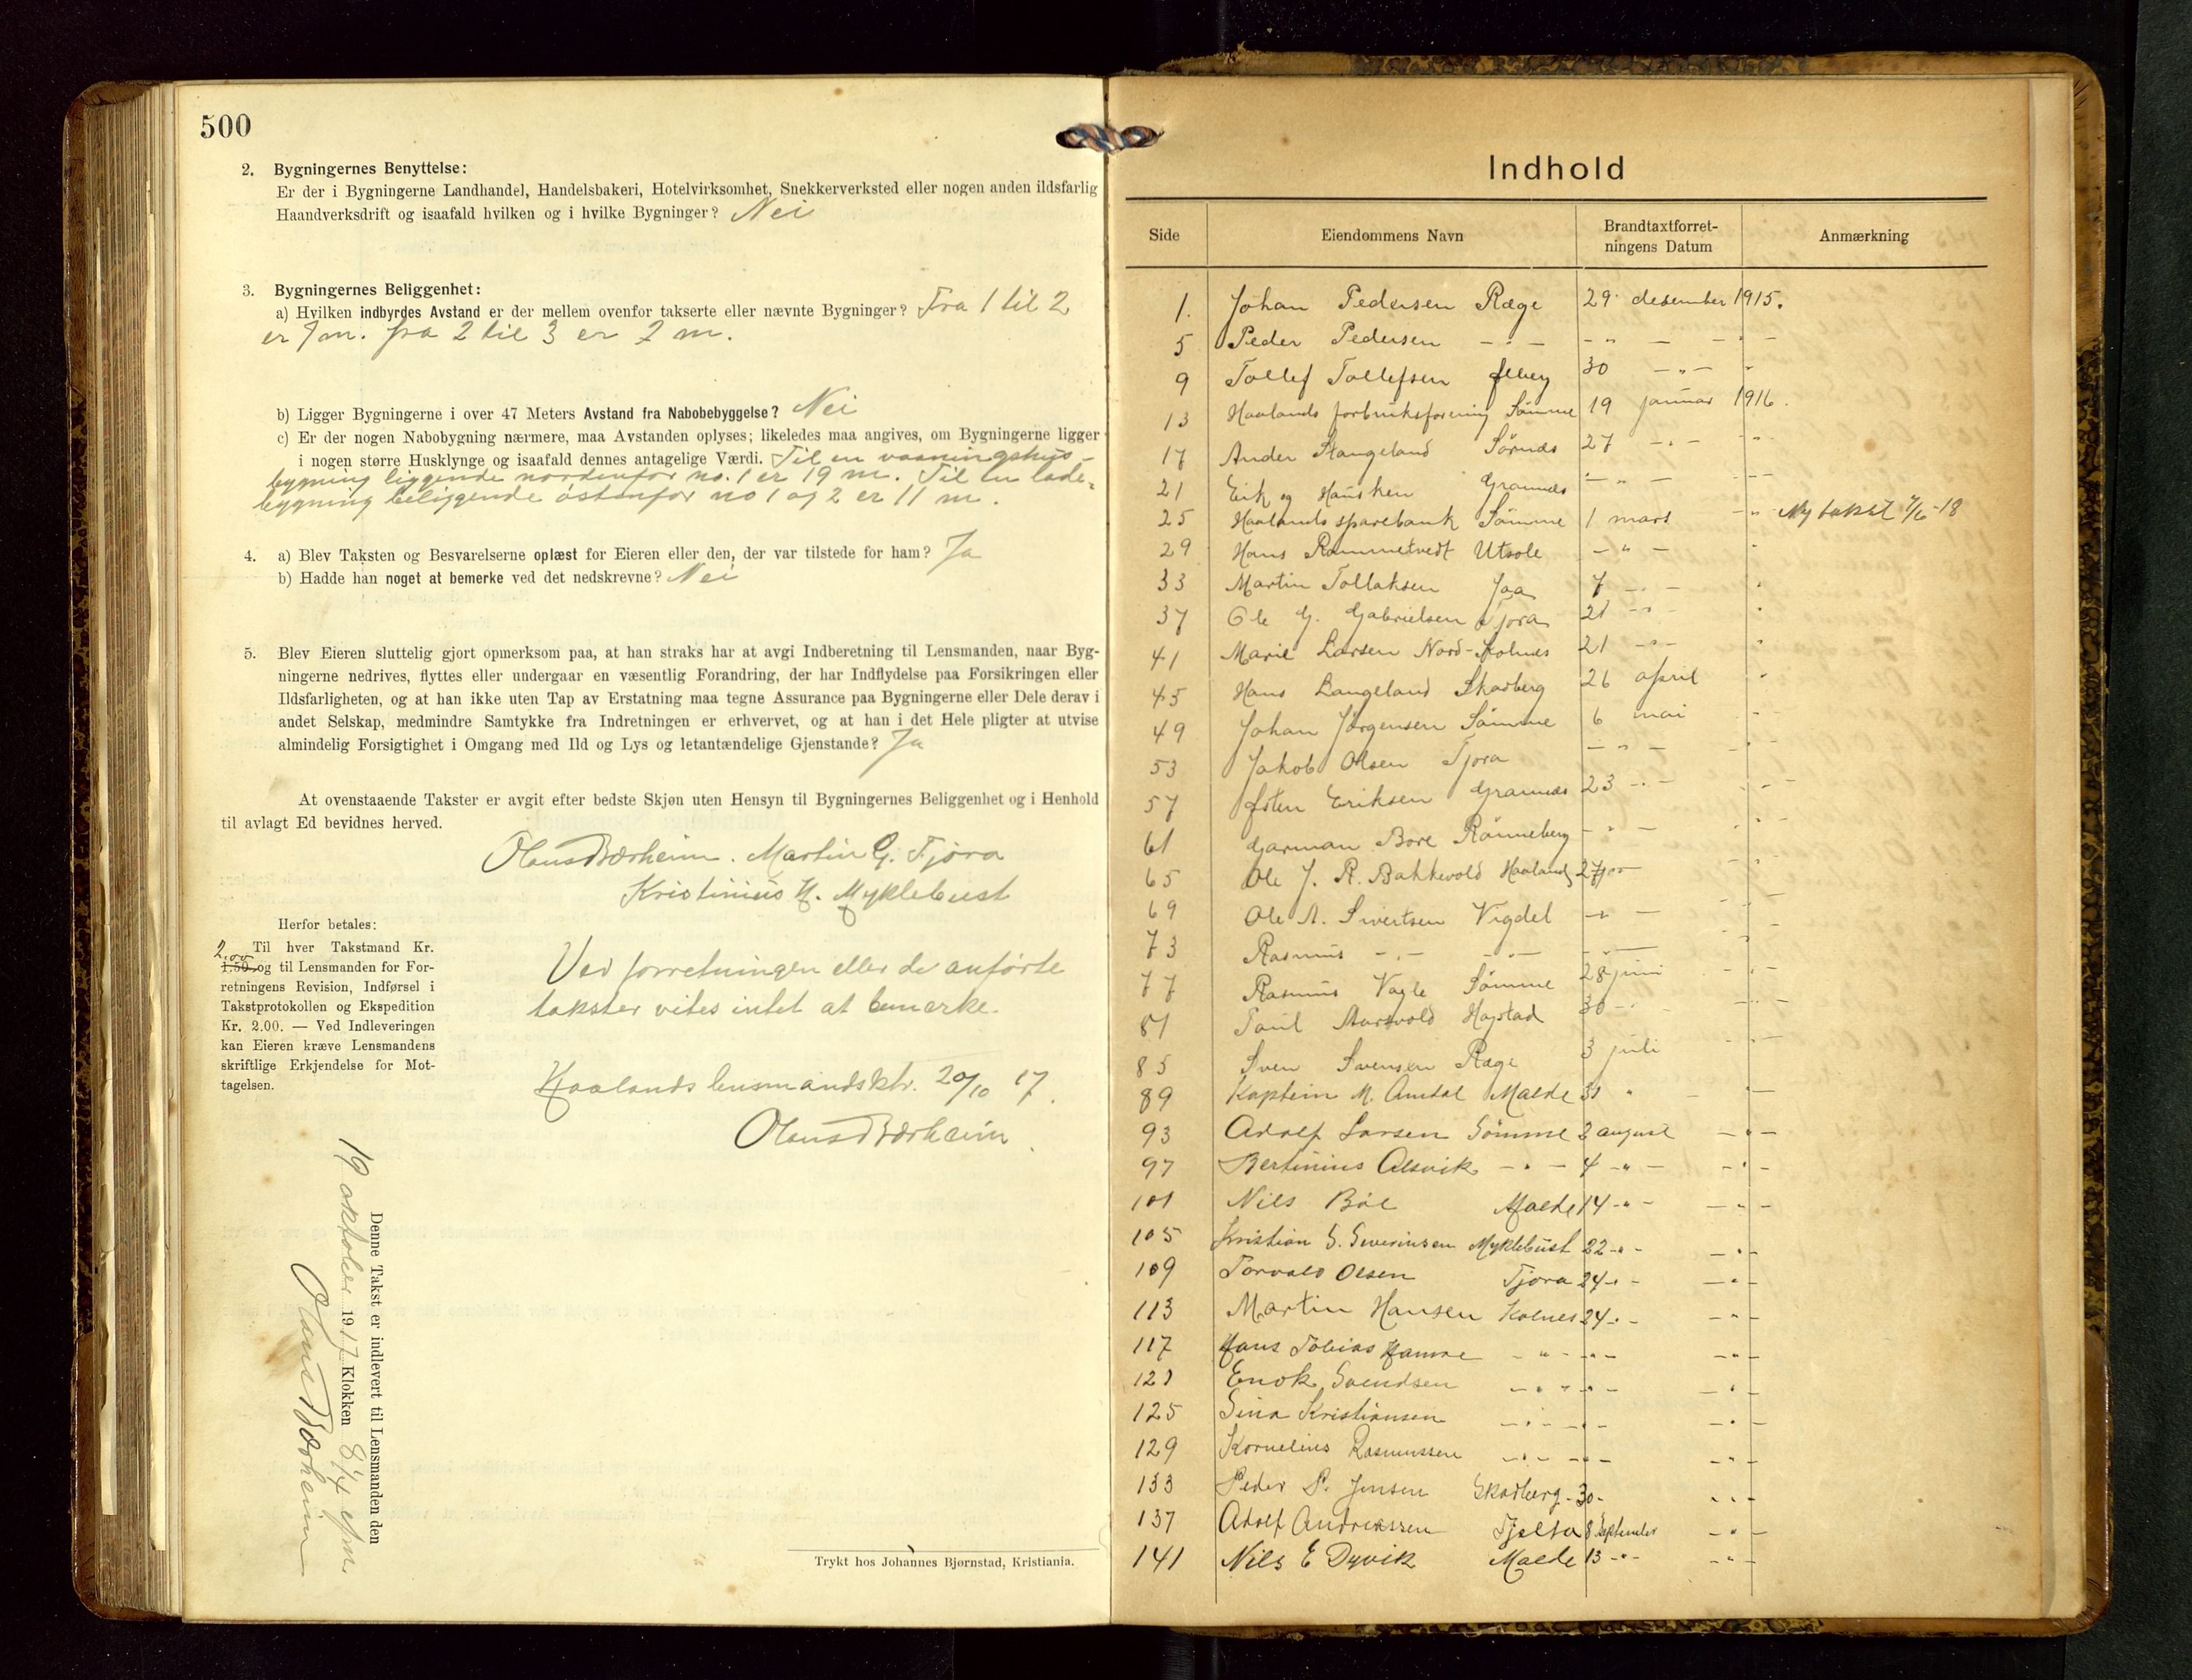 500
2. Bygningernes Benyttelse:
Er der i Bygningerne Landhandel, Handelsbakeri, Hotelvirksomhet, Snekkerverksted eller nogen anden ildsfarlig
Haandverksdrift og isaafald hvilken og i hvilke Bygninger? Nei
3. Bygningernes Beliggenhet:
a) Hvilken indbyrdes Avstand er der mellem ovenfor takserte eller nævnte Bygninger? Fra 1 til 2
er 7 m. fra 2 til 3 er 2 m.
b) Ligger Bygningerne i over 47 Meters Avstand fra Nabobebyggelse? Nei
c) Er der nogen Nabobygning nærmere, maa Avstanden oplyses; likeledes maa angives, om Bygningerne ligger
i nogen større Husklynge og isaafald dennes antagelige Værdi. Til en vaaningshus-
bygning liggende nordenfor no. 1 er 19 m. Til en lade-
bygning beliggende östenfor no 1 og 2 er 11 m.
4. a) Blev Taksten og Besvarelserne oplæst for Eieren eller den, der var tilstede for ham? Ja
b) Hadde han noget at bemerke ved det nedskrevne? Nei
5. Blev Eieren sluttelig gjort opmerksom paa, at han straks har at avgi Indberetning til Lensmanden, naar Byg-
ningerne nedrives, flyttes eller undergaar en væsentlig Forandring, der har Indflydelse paa Forsikringen eller
Ildsfarligheten, og at han ikke uten Tap av Erstatning maa tegne Assurance paa Bygningerne eller Dele derav i
andet Selskap, medmindre Samtykke fra Indretningen er erhvervet, og at han i det Hele pligter at utvise
almindelig Forsigtighet i Omgang med Ild og Lys og letantændelige Gjenstande? Ja
At ovenstaaende Takster er avgit efter bedste Skjøn uten Hensyn til Bygningernes Beliggenhet og i Henhold
til avlagt Ed bevidnes herved.
Olaus Bærheim. Martin G. Tjora
Kristinius H. Myklebust
Herfor betales:
2.00 Til hver Takstmand Kr.
1.50 og til Lensmanden for For-
retningens Revision, Indførsel i
Takstprotokollen og Ekspedition
Kr. 2.00. — Ved Indleveringen
kan Eieren kræve Lensmandens
skriftlige Erkjendelse for Mot-
tagelsen.
Ved forretningen eller de anförte
takster vites intet at bemerke.
Haalands lensmandsktr. 20/10 17.
Olaus Bærheim.
Denne Takst er indlevert til Lensmanden den
19 oktober 1917 Klokken 8 1/4 efm.
Olaus Bærheim
Trykt hos Johannes Bjørnstad, Kristiania.
Indhold
Side Eiendommens Navn Brandtaxtforret-ningens Datum Anmærkning
1. Johan Pedersen Ræge 29 desember 1915.
5 Peder Pedersen -"- -"- - " -
9 Tollef Tollefsen 30 -"- "
13 Haalands forbruksforening Sömme 19 januar 1916.
17 Ander Stangeland Sörnæs 27 -"- -"-
21 Eik og Hausken Grannæs -"- -"-
25 Haalands sparebank Sömme 1 mars -"- Ny takst 7/6-18
29 Hans Rommetvedt Utsole -"- "
33 Martin Tollaksen Jaa 7 -"- "
37 Ole G. Gabrielsen Tjora 21 -"- "
41 Marie Larsen Nord-Kolnes 21 -"- "
45 Hans Langeland Skadberg 26 april "
49 Johan Jörgensen Sömme 6 mai -
53 Jakob Olsen Tjora -"- -"-
57 Östen Eriksen Grannæs 23 -"- -"-
61 Garman Bore Rönneberg -"- -"-
65 Ole J. R. Bakkevold Haaland 27 -"-
69 Ole A. Sivertsen Vigdel -"- -"-
73 Rasmus -"- -"- -"- -"-
77 Rasmus Vagle Sömme 28 juni -"-
81 Paul Aarsvold Hogstad 30 -"- -"-
85 Sven Svensen Ræge 3 juli -"-
89 Kaptein M. Amdal Malde 31 " -"-
93 Adolf Larsen Sömme 2 august -"-
97 Bertinius Alsvik -"- 4 -"- -"-
101 Nils Böe Malde 14 -"- -"-
105 Kristian S. Severinsen Myklebust 22 -"- -"-
109 Torvald Olsen Tjora 24 -"- -"-
113 Martin Hansen Kolnes 24 -"- -"-
117 Hans Tobias Hamre -"- -"- -"-
121 Enok Svendsen -"- -"- -"-
125 Sina Kristiansen -"- -"- -"-
129 Kornelius Rasmussen -"- -"- -"-
133 Peder P. Jensen Skadberg 30 - -"-
137 Adolf Andreassen Tjelta 8 september -"-
141 Nils E Dyvik Malde 13 -"- -"-